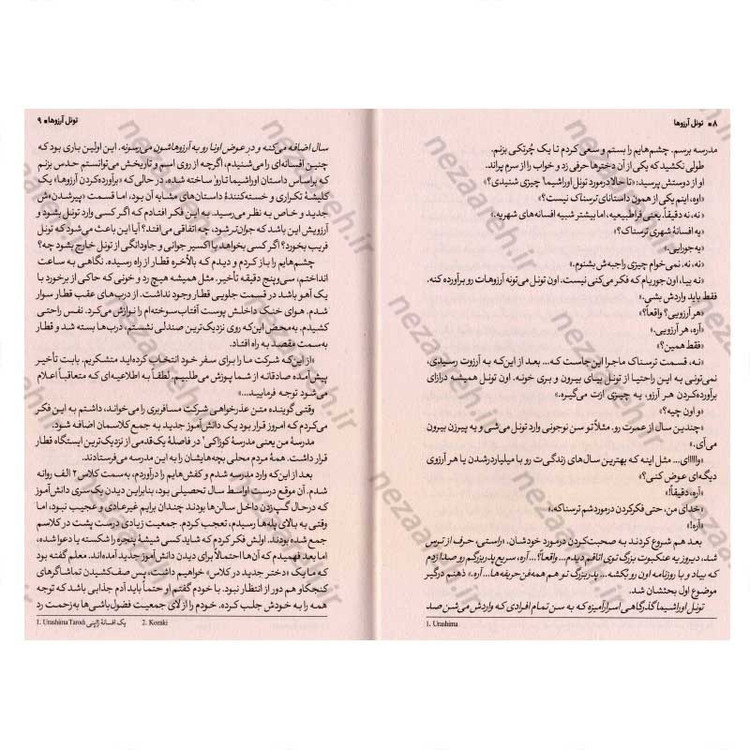 ۸ • تونل آرزوها
مدرسه برسم. چشم‌هایم را بستم و سعی کردم تا یک چُرتکی بزنم.
طولی نکشید که یکی از آن دخترها حرفی زد و خواب را از سرم پراند.
او از دوستش پرسید: «تا حالا درمورد تونل اوراشیما¹ چیزی شنیدی؟»
«اوه، اینم یکی از همون داستانای ترسناک نیست؟»
«نه، نه دقیقاً. یعنی فراطبیعیه، اما بیشتر شبیه افسانه‌های شهریه.»
«یه افسانهٔ شهری ترسناک؟»
«یه جورایی.»
«نه، نه. نمی‌خوام چیزی راجبه‌ش بشنوم.»
«نه بیا، اون جوریام که فکر می‌کنی نیست. اون تونل می‌تونه آرزوهات رو برآورده کنه.
فقط باید واردش بشی.»
«هر آرزویی؟ واقعاً؟»
«آره، هر آرزویی.»
«فقط همین؟»
«نـه، قسمت ترسناک ماجرا این جاست که... بعد از این‌که به آرزوت رسیدی،
نمی‌تونی به این راحتیا از تونل بیای بیرون و بری خونه. اون تونل همیشه درازای
برآورده‌کردن هر آرزو، یه چیزی ازت می‌گیره.»
«و اون چیه؟»
«چندین سال از عمرت رو. مثلاً تو سن نوجوونی وارد تونل می‌شی و یه پیرزن بیرون
می‌آی.»
«وااااای... مثل اینه که بهترین سال‌های زندگی‌ت رو با میلیاردرشدن یا هر آرزوی
دیگه‌ای عوض کنی؟»
«آره، دقیقاً!»
«خدای من، حتی فکرکردن درموردشم ترسناکه.»
«آره!»
بعد هم شروع کردند به صحبت‌کردن درمورد خودشان. «راستی، حرف از ترس
شد، دیروز یه عنکبوت بزرگ توی اتاقم دیدم... واقعاً؟... آره، سریع پدربزرگم رو صدا زدم
که بیاد و با روزنامه اون رو بُکشه... پدربزرگ تو هم همه‌فن‌حریفه‌ها... آره.» ذهنم درگیر
موضوع اول بحثشان شد.
تونل اوراشیما گذرگاهی اسرارآمیزه که به سن تمام افرادی که واردش می‌شن صد
1. Urashima
تونل آرزوها • ۹
سال اضافه می‌کنه و در عوض اونا رو به آرزوهاشون می‌رسونه. این اولین باری بود که
چنین افسانه‌ای را می‌شنیدم، اگرچه از روی اسم و تاریخش می‌توانستم حدس بزنم
که براساس داستان اوراشیما تارو¹ ساخته شده، درحالی که «برآورده‌کردن آرزوها» یک
کلیشهٔ تکراری و خسته‌کنندهٔ داستان‌های مشابه آن بود، اما قسمت «پیرشدن»ش
جدید و خاص به نظر می‌رسید. به این فکر افتادم که اگر کسی وارد تونل بشود و
آرزویش این باشد که جوان‌تر شود، چه اتفاقی می‌افتد؟ آیا این باعث می‌شود که تونل
فریب بخورد؟ اگر کسی بخواهد با اکسیر جوانی و جاودانگی از تونل خارج بشود چه؟
چشم‌هایم را باز کردم و دیدم که بالأخره قطار از راه رسیده. نگاهی به ساعت
انداختم، سی‌وپنج دقیقه تأخیر. مثل همیشه هیچ رد و خونی که حاکی از برخورد با
یک آهو باشد در قسمت جلویی قطار وجود نداشت. از درب‌های عقب قطار سوار
شدم. هوای خنک داخلش پوست آفتاب‌سوخته‌ام را نوازش می‌کرد. نفس راحتی
کشیدم. به‌محض این‌که روی نزدیک‌ترین صندلی نشستم، درب‌ها بسته شد و قطار
به‌سمت مقصد به راه افتاد.
«از این‌که شرکت ما را برای سفر خود انتخاب کرده‌اید متشکریم. بابت تأخیر
پیش‌آمده صادقانه از شما پوزش می‌طلبیم. لطفاً به اطلاعیه‌ای که متعاقباً اعلام
می‌شود توجه فرمایید...»
وقتی گوینده متن عذرخواهی شرکت مسافربری را می‌خواند، داشتم به این فکر
می‌کردم که امروز قرار بود یک دانش‌آموز جدید به جمع کلاسمان اضافه شود.
مدرسهٔ من یعنی مدرسهٔ کوزاکی² در فاصلهٔ یک‌قدمی از نزدیک‌ترین ایستگاه قطار
قرار داشت. همهٔ مردم محلی بچه‌هایشان را به این مدرسه می‌فرستادند.
بعد از این‌که وارد مدرسه شدم و کفش‌هایم را درآوردم، به‌سمت کلاس ۲ الف روانه
شدم. آن موقع درست اواسط سال تحصیلی بود، بنابراین دیدن یک‌سری دانش‌آموز
که درحال گپ‌زدن داخل سالن‌ها بودند چندان برایم غیرعادی و عجیب نبود، اما
وقتی به بالای پله‌ها رسیدم، تعجب کردم. جمعیت زیادی درست پشت در کلاسم
جمع شده بودند. اولش فکر کردم که شاید کسی شیشهٔ پنجره را شکسته یا دعوا شده،
اما بعد فهمیدم که آن‌ها احتمالاً برای دیدن دانش‌آموز جدید آمده‌اند. معلم گفته بود
که ما یک «دختر جدید در کلاس» خواهیم داشت، پس صف‌کشیدن تماشاگرهای
کنجکاو هم دور از انتظار نبود. با خودم گفتم او حتماً باید آدم جذابی باشد که توجه
همه را به خودش جلب کرده. خودم را از لای جمعیت فضول‌باشی‌ها به‌زحمت رد
1. Urashima Taroū یک افسانهٔ ژاپنی 2. Kozaki
nezaareh.ir